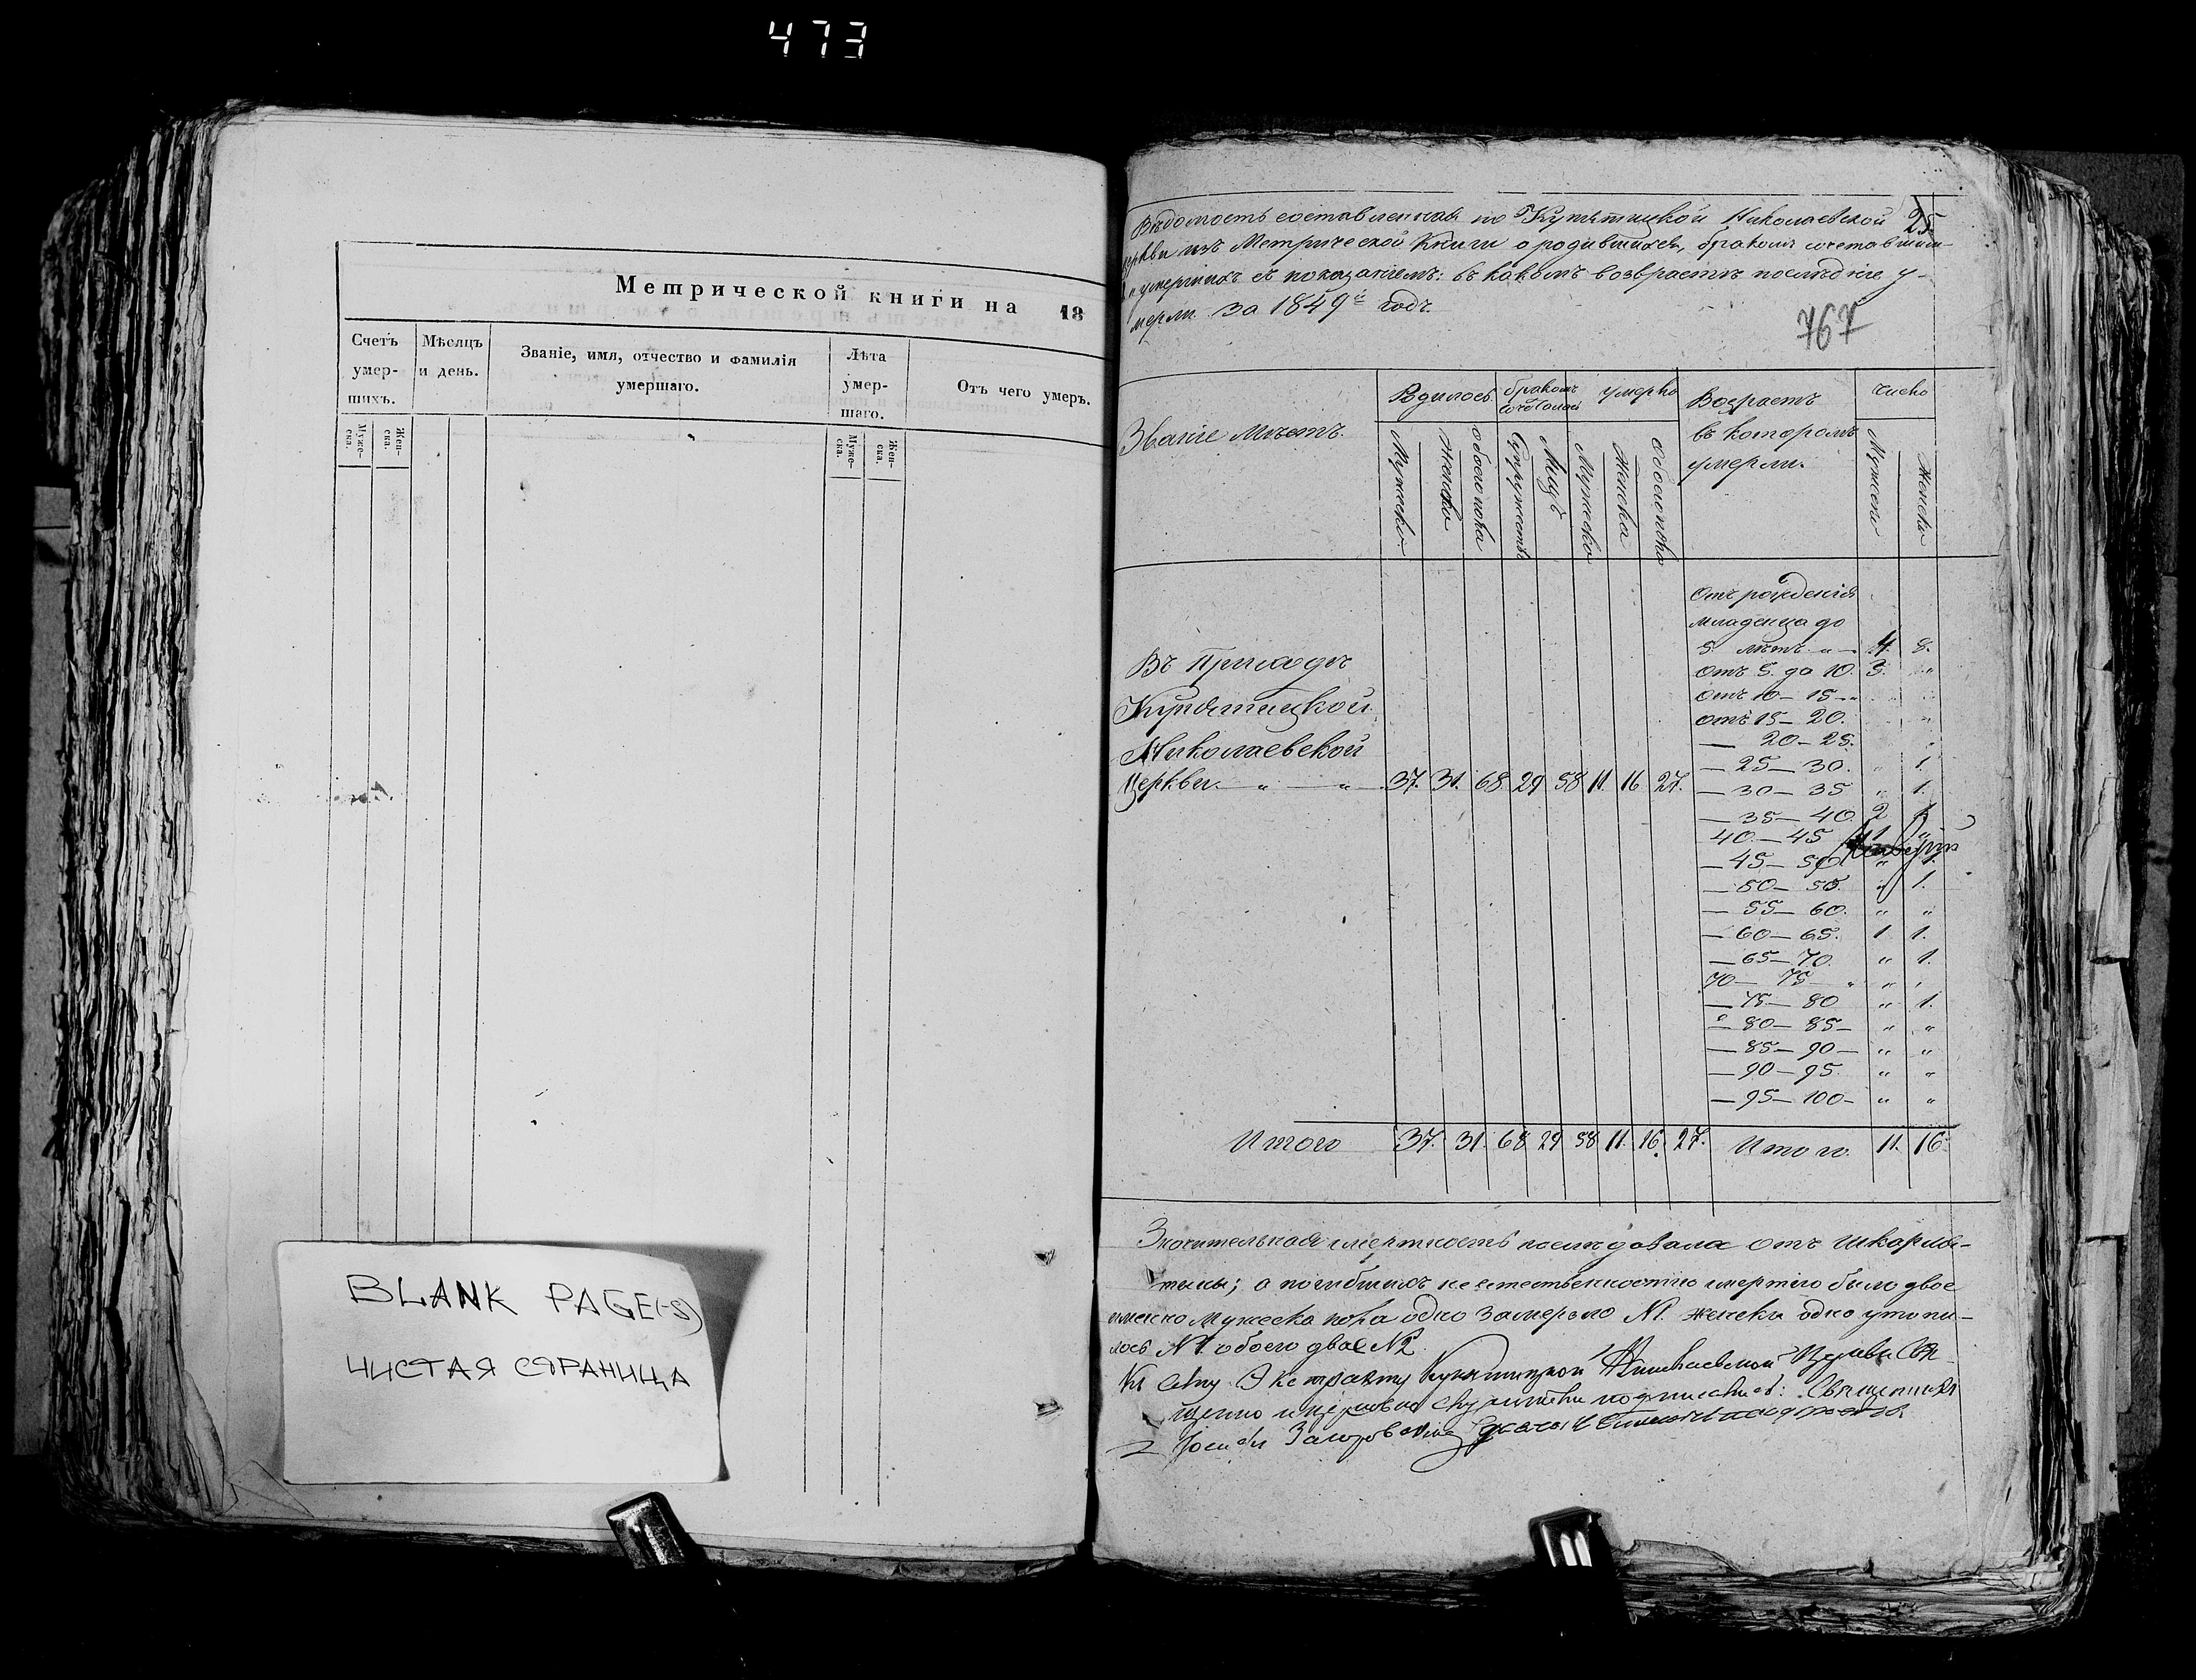 473
Метрической книги на 18
Счетъ умер- шихъ.
Мѣсяцъ и день.
Званіе, имя, отчество и фамилія умершаго.
Лѣта умер- шаго.
Отъ чего умеръ.
Муже- ска.
Жен- ска.
Муже- ска.
Жен- ска.
BLANK PAGE(-S)
ЧИСТАЯ СТРАНИЦА
Вѣдомость составленная по Николаевской 25
церкви изъ Метрической Книги о родившихся, бракомъ сочетавших-
и умершихъ съ показаніемъ: въ какомъ возврастѣ послѣдніе у-
мерли за 1849й годъ.
767
Званіе Мѣстъ.
Родилось
бракомъ
умерло
Возрастъ въ которомъ умерли.
число
Мужеска
Женска
обоего пола
Супружествъ
Лицъ
Мужеска
Женска
обоего пола
Мужеска
Женска
Отъ рожденія
младенца до
5 лѣтъ „ — 4. 8.
отъ 5 до 10. 3. „
отъ 10 — 15 — „
отъ 15 — 20. „
— 20 — 25. „
— 25 — 30. „ 1.
— 30 — 35 „ 1.
— 35 — 40. 2 1.
40. — 45 1 „
— 45 — 50 „ 1.
— 50 — 55. „ 1.
— 55 — 60. „ „
— 60 — 65. 1. 1.
— 65 — 70. „ 1.
70 — 75 — „ „
— 75 — 80 „ 1.
— 80 — 85 — „ „
— 85 — 90 — „ „
— 90 — 95. „ „
— 95 — 100 — „ „
Въ Приходѣ
Николаевской
Церкви. — „ — „ 37. 31. 68 29 58 11. 16 27.
Итого 37. 31. 68 29 58 11. 16. 27. Итого. 11. 16.
Значительная смертность послѣдовала отъ шкарла-
тины; а погибшихъ неестественностію смертію было двое
именно мужеска пола одно замерзло №1. женска одно утопи-
лось №1 обоего двое №2
Къ сему Экстракту Николаевской Церкви Свя-
подписался: Священникъ